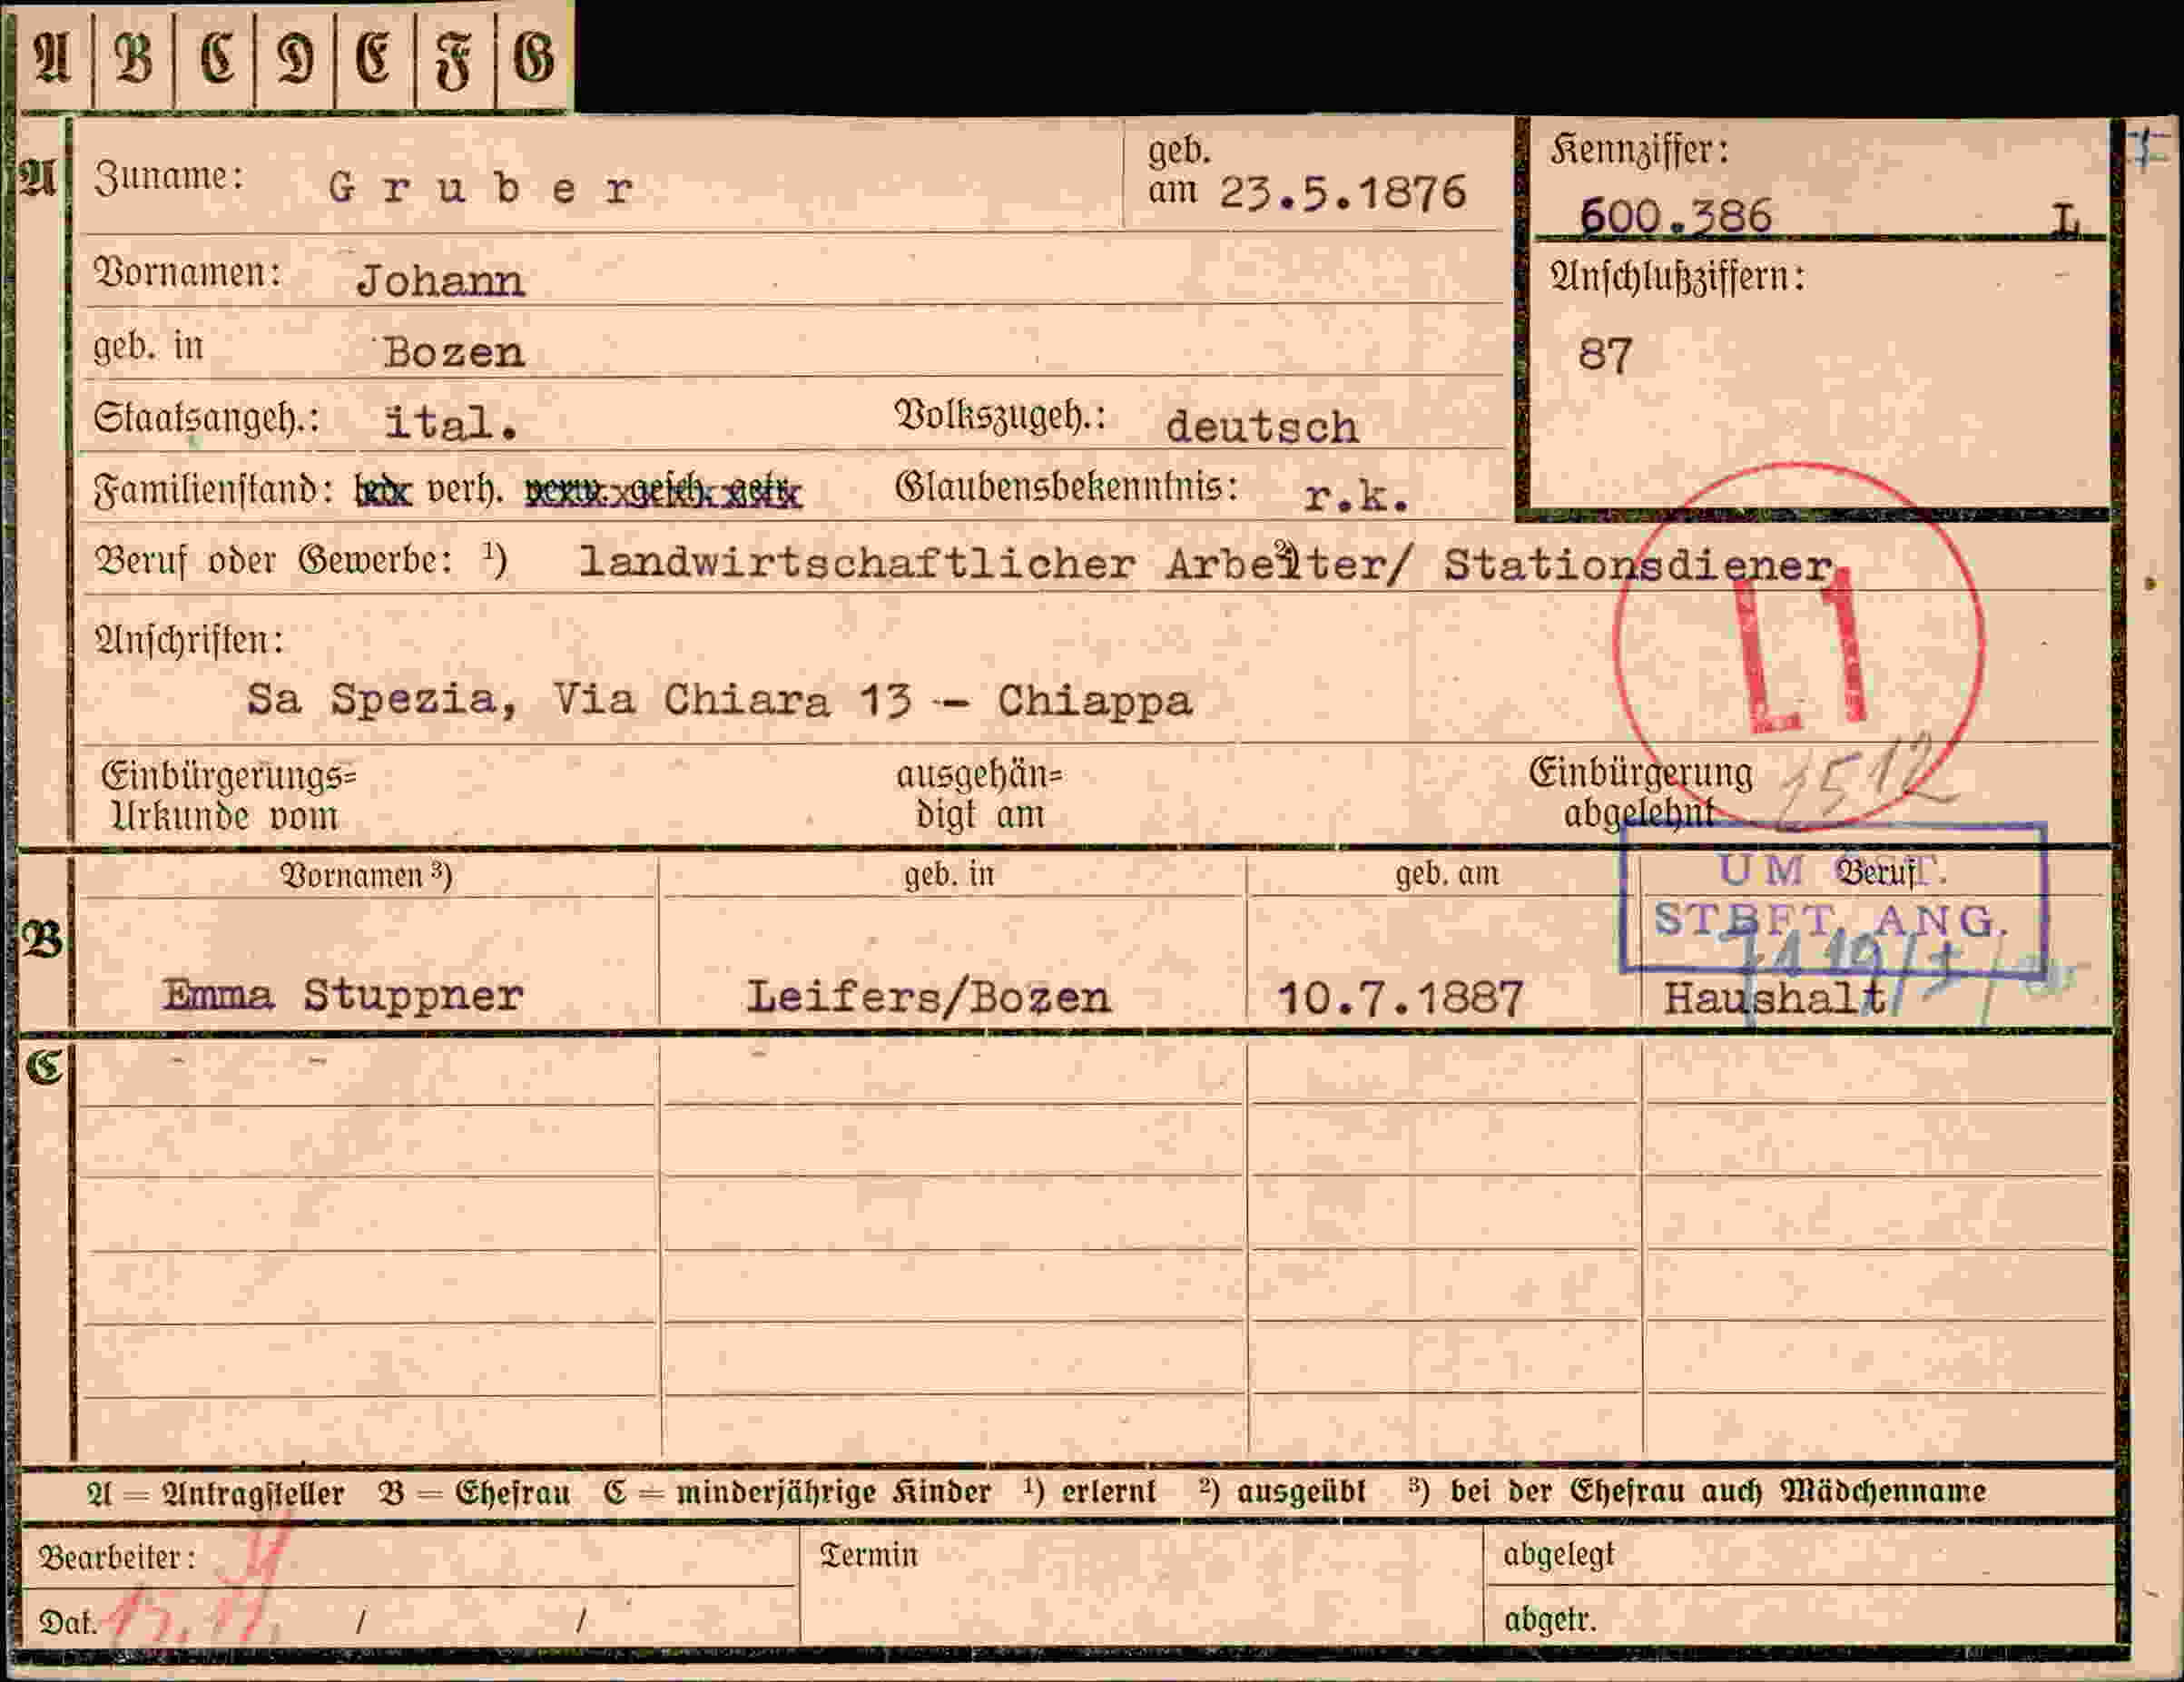 A B C D E F G
A Zuname: Gruber geb. am 23.5.1876 Kennziffer: 600.386 L
Vornamen: Johann Anschlußziffern:
geb. in Bozen 87
Staatsangeh.: ital. Volkszugeh.: deutsch
Familienstand: led. verh. verw. gesch. getr. Glaubensbekenntnis: r.k.
Beruf oder Gewerbe: ¹) landwirtschaftlicher Arbeiter/ ²) Stationsdiener
L1
Anschriften:
Sa Spezia, Via Chiara 13 -- Chiappa
Einbürgerungs= ausgehän= Einbürgerung 1512
Urkunde vom digt am abgelehnt
Vornamen ³) geb. in geb. am Beruf
UM
STBFT. ANG.
B Emma Stuppner Leifers/Bozen 10.7.1887 Haushalt
C
A = Antragsteller B = Ehefrau C = minderjährige Kinder ¹) erlernt ²) ausgeübt ³) bei der Ehefrau auch Mädchenname
Bearbeiter: Termin abgelegt
Dat. / / abgetr.